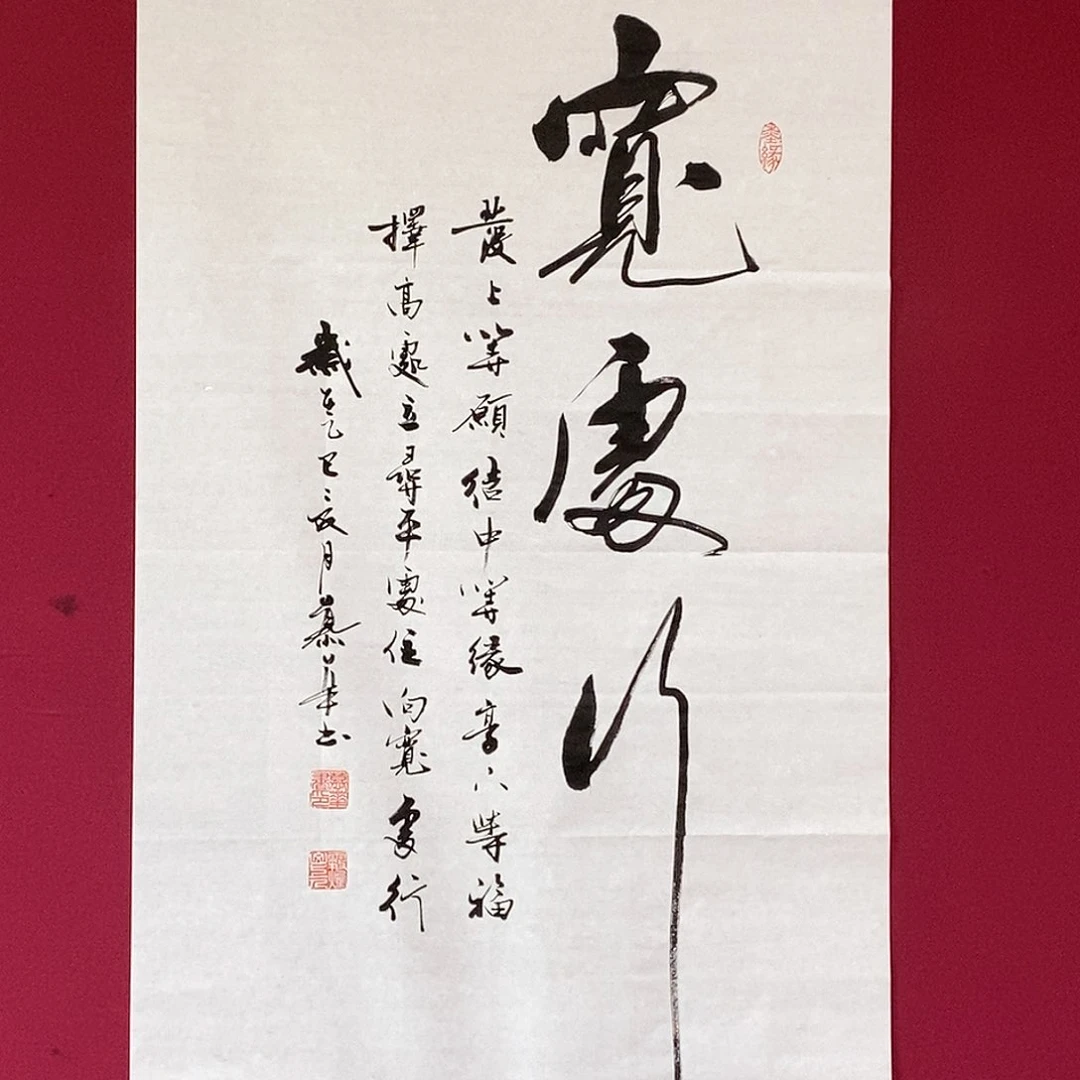 寬處行
發上等願結中等緣享下等福
擇高處立尋平處住向寬處行
歲在乙巳年月慕華书
墨緣